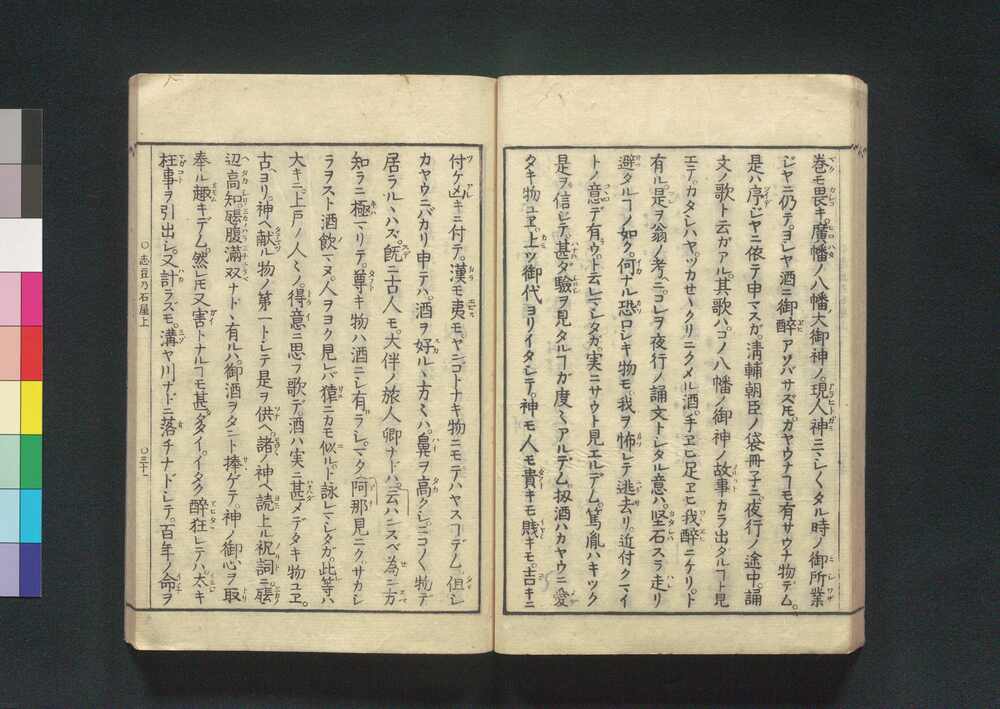 巻モ畏キ。廣幡ノ八幡大御神ノ。現人神ニマシ〱タル時ノ御所業
ジヤニ仍テ。ヨシヤ酒ニ御醉アソバサズ𪜈。カヤウナヿモ有サウナ物デム。
是ハ序ジヤニ依テ申マスガ。清輔朝臣ノ袋冊子ニ。夜行ノ途中。誦
文ノ歌ト云ガアル。其歌ハ。コノ八幡ノ御神ノ故事カラ出タルヿト見
エテ。カタシハヤ。ヅカせ〱クリニクメル酒。手ヱヒ足ヱヒ我醉ニケリ。ト
有ル。是ヲ翁ノ考ヘニ。コレヲ夜行ノ誦文トシタル意ハ。坚石スラ走リ
避タルヿノ如ク。何ナル恐ロシキ物モ。我ヲ怖レテ逃去リ。近付クマイ
トノ意デ有ウ。ト云レマシタガ。実ニサウト見エルデム。篤胤ハキツク
是ヲ信じテ。甚ダ驗ヲ見タルヿガ度〻アルデム。扨酒ハカヤウニ愛
タキ物ユヱ。上ツ御代ヨリイタシテ。神モ人モ貴キモ賤キモ。吉キニ
付ケ凶キニ付テ。漢モ夷モ。ヤンゴトナキ物ニモテハヤスヿデム。但シ
カヤウニバカリ申テハ。酒ヲ好ル丶方〻ハ。鼻ヲ高クシ。ニコ〱物デ
居ラル丶ハズ。既ニ古人モ。大伴ノ旅人卿ナドハ。云ハンスベ為ン方
知ラニ極マリテ。尊キ物ハ酒ニシ有ラシ。マタ阿那見ニク。サカシ
ラヲスト酒飲マヌ。人ヲヨク見レバ猿ニカモ似ル。ト詠レマシタガ。此等ハ
大キニ。上戸ノ人〻ノ。得意ニ思フ歌デ。酒ハ実ニ甚メデタキ物ユヱ。
古ヘヨリ。神ヘ献ル物ノ第一トシテ。是ヲ供ヘ。諸ノ神ヘ読上ル祝詞ニ。𤭖
辺高知。𤭖腹滿双ナド丶有ルハ。御酒ヲタント捧ゲテ。神ノ御心ヲ取
奉ル趣キデム。然レ𪜈又害トナルヿモ甚ダ多イ。イタク醉狂レテハ。太キ
枉事ヲ引出シ。又計ラズモ。溝ヤ川ナドニ落チナドシテ。百年ノ命ヲ
〇志豆乃石屋上
〇三十一